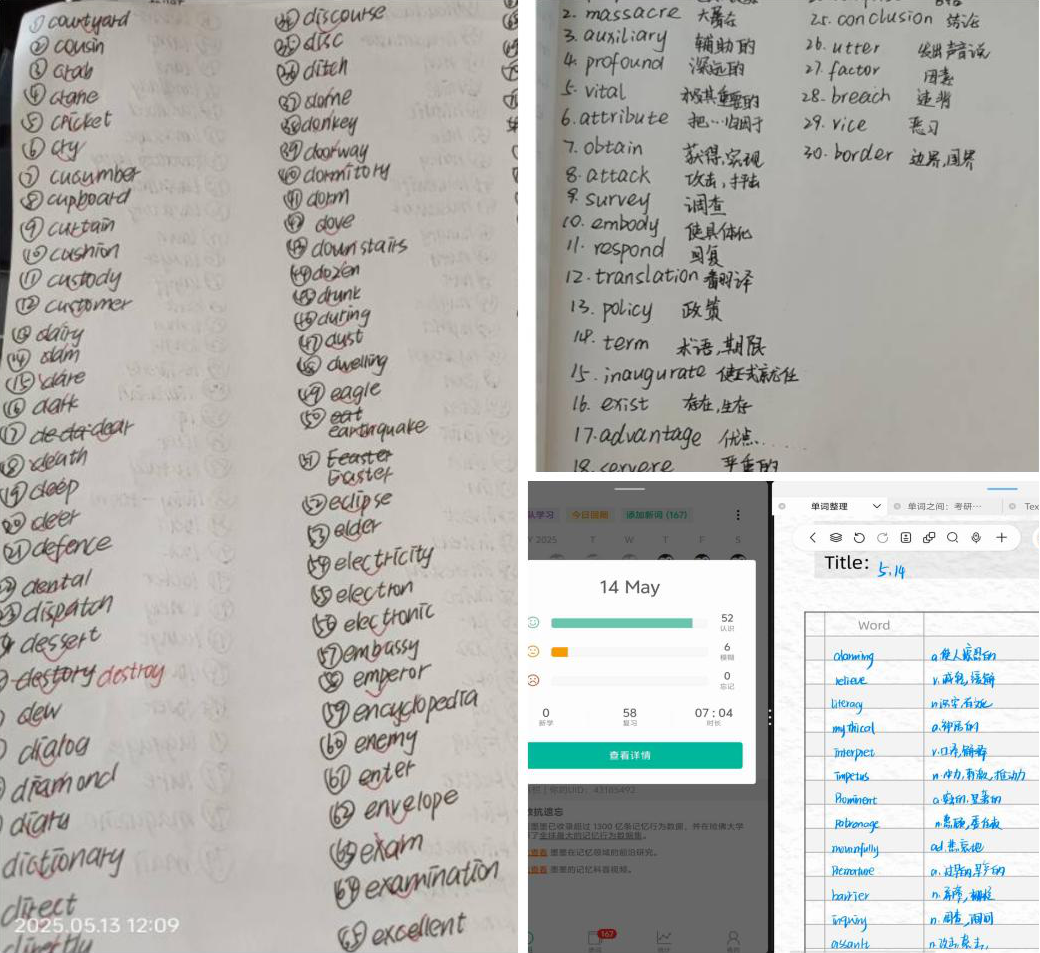 ① courtyard
② cousin
③ crab
④ crane
⑤ cricket
⑥ cry
⑦ cucumber
⑧ cupboard
⑨ curtain
⑩ cushion
⑪ custody
⑫ customer
⑬ dairy
⑭ dam
⑮ dare
⑯ dark
⑰ de da dear
⑱ death
⑲ deep
⑳ deer
㉑ defence
dental
dispatch
dessert
destory destroy
dew
dialog
diamond
diary
dictionary
direct
directly
2025.05.13 12:09
discourse
disc
ditch
㊲ dome
㊳ donkey
㊴ doorway
㊵ dormitory
㊶ dorm
dove
㊸ downstairs
㊹ dozen
㊺ drunk
㊻ during
㊼ dust
㊽ dwelling
㊾ eagle
㊿ eat
earthquake
(51) Feaster
Easter
(52) eclipse
(53) elder
electricity
(55) electron
(56) electronic
(57) embassy
emperor
(59) encyclopedia
(60) enemy
(61) enter
(62) envelope
(63) exam
(64) examination
(65) excellent
2. massacre 大屠杀
3. auxiliary 辅助的
4. profound 深远的
5. vital 极其重要的
6. attribute 把…归因于
7. obtain 获得,实现
8. attack 攻击,抨击
9. survey 调查
10. embody 使具体化
11. respond 回复
12. translation 翻译
13. policy 政策
14. term 术语,期限
15. inaugurate 使正式就任
16. exist 存在,生存
17. advantage 优点
18. servere 严重的
25. conclusion 结论
26. utter 发出声音,说
27. factor 因素
28. breach 违背
29. vice 恶习
30. border 边界,国界
队学习 今日提醒 添加新词 (167)
Y 2025 T W T F S
14 May
52
认识
6
模糊
0
忘记
0 58 07 : 04
新学 复习 时长
查看详情
你的UID: 43185492
抗遗忘
墨墨已收录超过 1300 亿条记忆行为数据，并在哈佛大学
了全球最大的记忆行为数据集。
查看 墨墨在记忆领域的前沿研究。
查看 墨墨的记忆科普视频。
167
单词整理 单词之间：考研… Tex
Title: 5.14
Word
alarming
relieve v.减轻,缓解
literacy
mythical a.神话的
interpret v.口译,解释
impetus n.冲力,刺激,推动力
Prominent
Patronage
mournfully ad.悲哀地
Premature
barrier
inquiry
assault